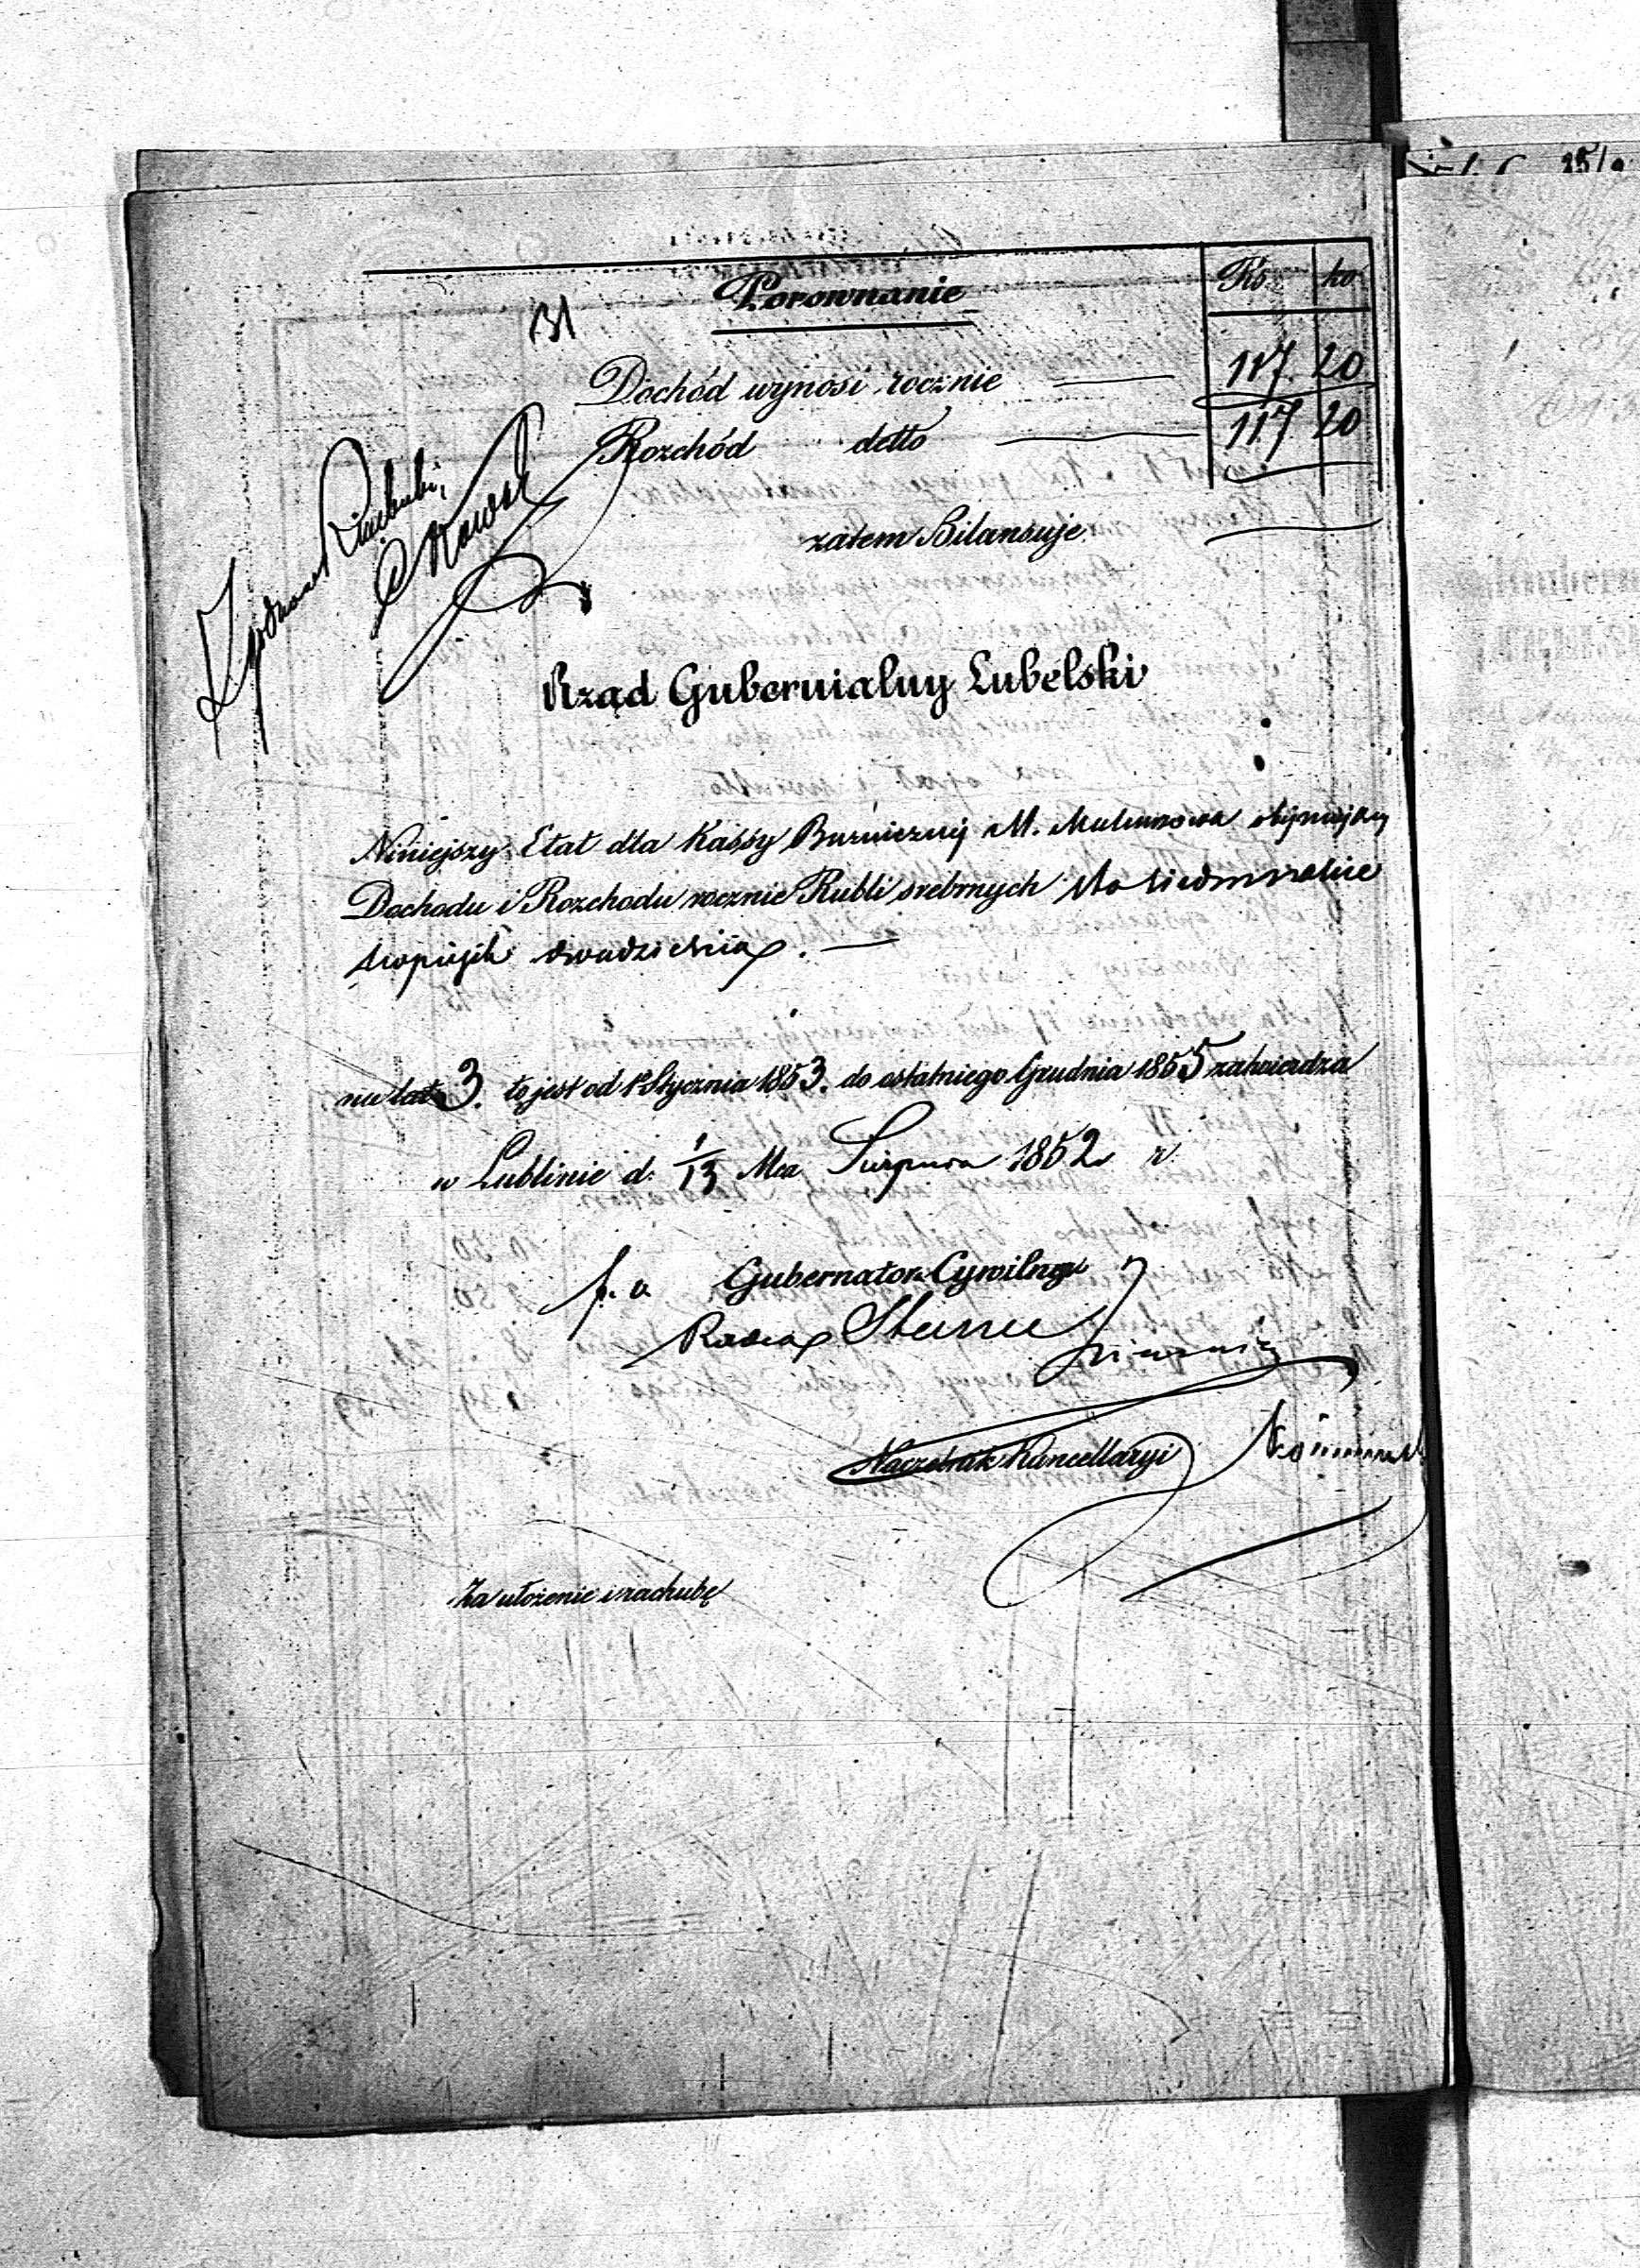 Porownanie
Rs ko
131
Dochód wynosi rocznie 117. 20
Rozchód detto 117 20
zatem Bilansuje
Rząd Gubernialny Lubelski
Niniejszy Etat dla Kassy Bużniczney M. obejmujący
Dochodu i Rozchodu rocznie Rubli srebrnych sto siedmnaście
kopiejek dwadzieścia. —
na lat 3. to jest od 1º Stycznia 1853. do ostatniego Grudnia 1855 zatwierdza
w Lublinie d. 1/13 Mca Sierpnia 1852 r.
Gubernator Cywilny
Radca
Naczelnik Kancellaryi
Za ułożenie i rachubę